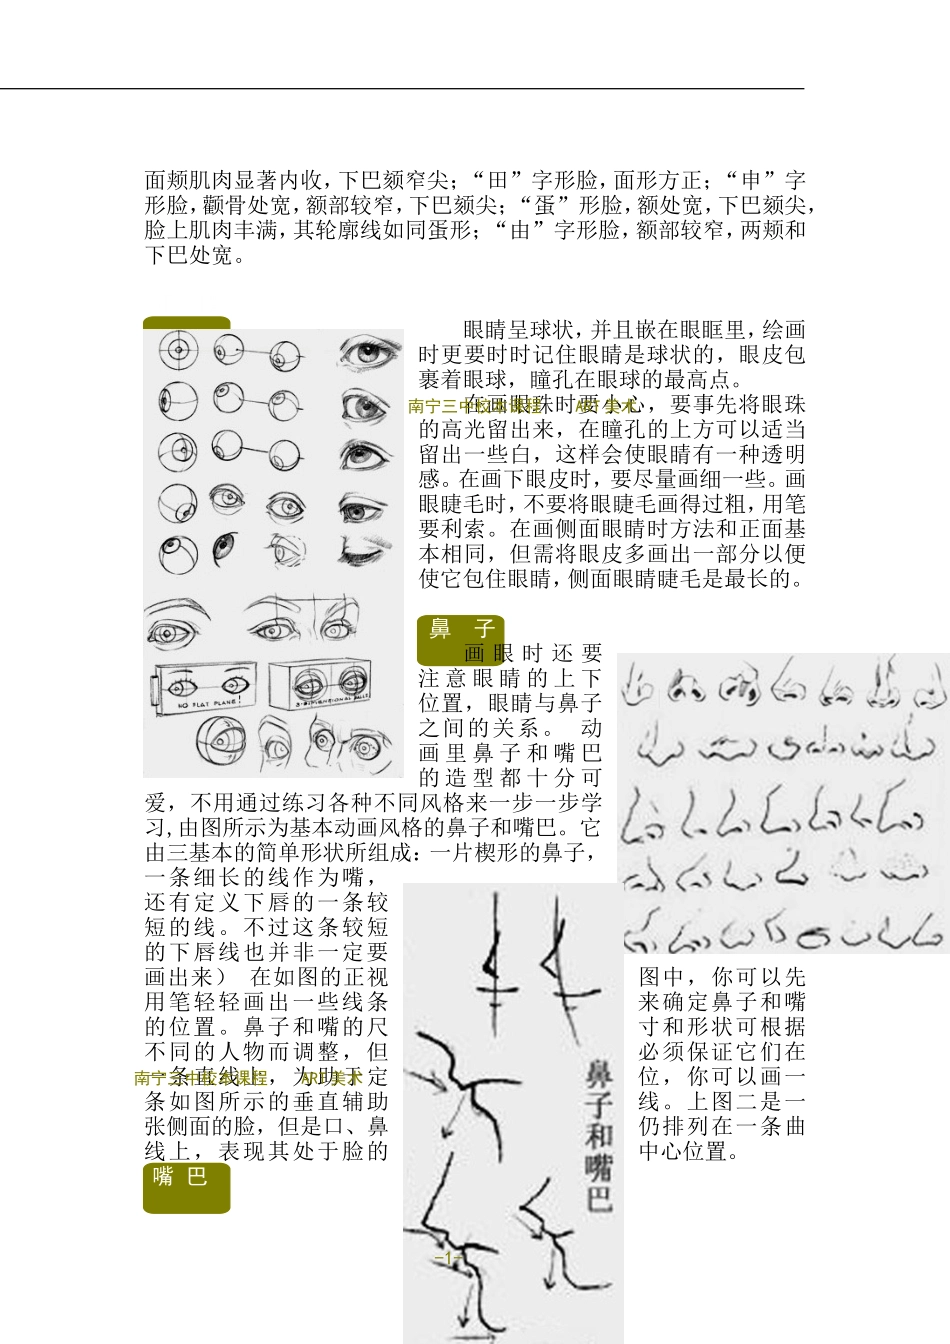 面颊肌肉显著内收，下巴颏窄尖；“田”字形脸，面形方正；“申”字
形脸，颧骨处宽，额部较窄，下巴颏尖；“蛋”形脸，额处宽，下巴颏尖，
脸上肌肉丰满，其轮廓线如同蛋形；“由”字形脸，额部较窄，两颊和
下巴处宽。
眼睛呈球状，并且嵌在眼眶里，绘画
时更要时时记住眼睛是球状的，眼皮包
裹着眼球，瞳孔在眼球的最高点。
在画眼珠时要小心，要事先将眼珠
南宁三中校本课程 ART 美术
的高光留出来，在瞳孔的上方可以适当
留出一些白，这样会使眼睛有一种透明
感。在画下眼皮时，要尽量画细一些。画
眼睫毛时，不要将眼睫毛画得过粗，用笔
要利索。在画侧面眼睛时方法和正面基
本相同，但需将眼皮多画出一部分以便
使它包住眼睛，侧面眼睛睫毛是最长的。
NO FLAT PLANE!
3-DIMENSIONAL BALLS
鼻 子
画眼时还要
注意眼睛的上下
位置，眼睛与鼻子
之间的关系。 动
画里鼻子和嘴巴
的造型都十分可
爱，不用通过练习各种不同风格来一步一步学
习,由图所示为基本动画风格的鼻子和嘴巴。它
由三基本的简单形状所组成：一片楔形的鼻子，
一条细长的线作为嘴，
还有定义下唇的一条较
短的线。不过这条较短
的下唇线也并非一定要
画出来） 在如图的正视
图中，你可以先
用笔轻轻画出一些线条
来确定鼻子和嘴
的位置。鼻子和嘴的尺
寸和形状可根据
不同的人物而调整，但
必须保证它们在
一条直线上，为助于定
位，你可以画一
南宁三中校本课程 ART 美术
条如图所示的垂直辅助
线。上图二是一
张侧面的脸，但是口、鼻
仍排列在一条曲
线上，表现其处于脸的
中心位置。
鼻子和嘴巴
嘴 巴
-1-